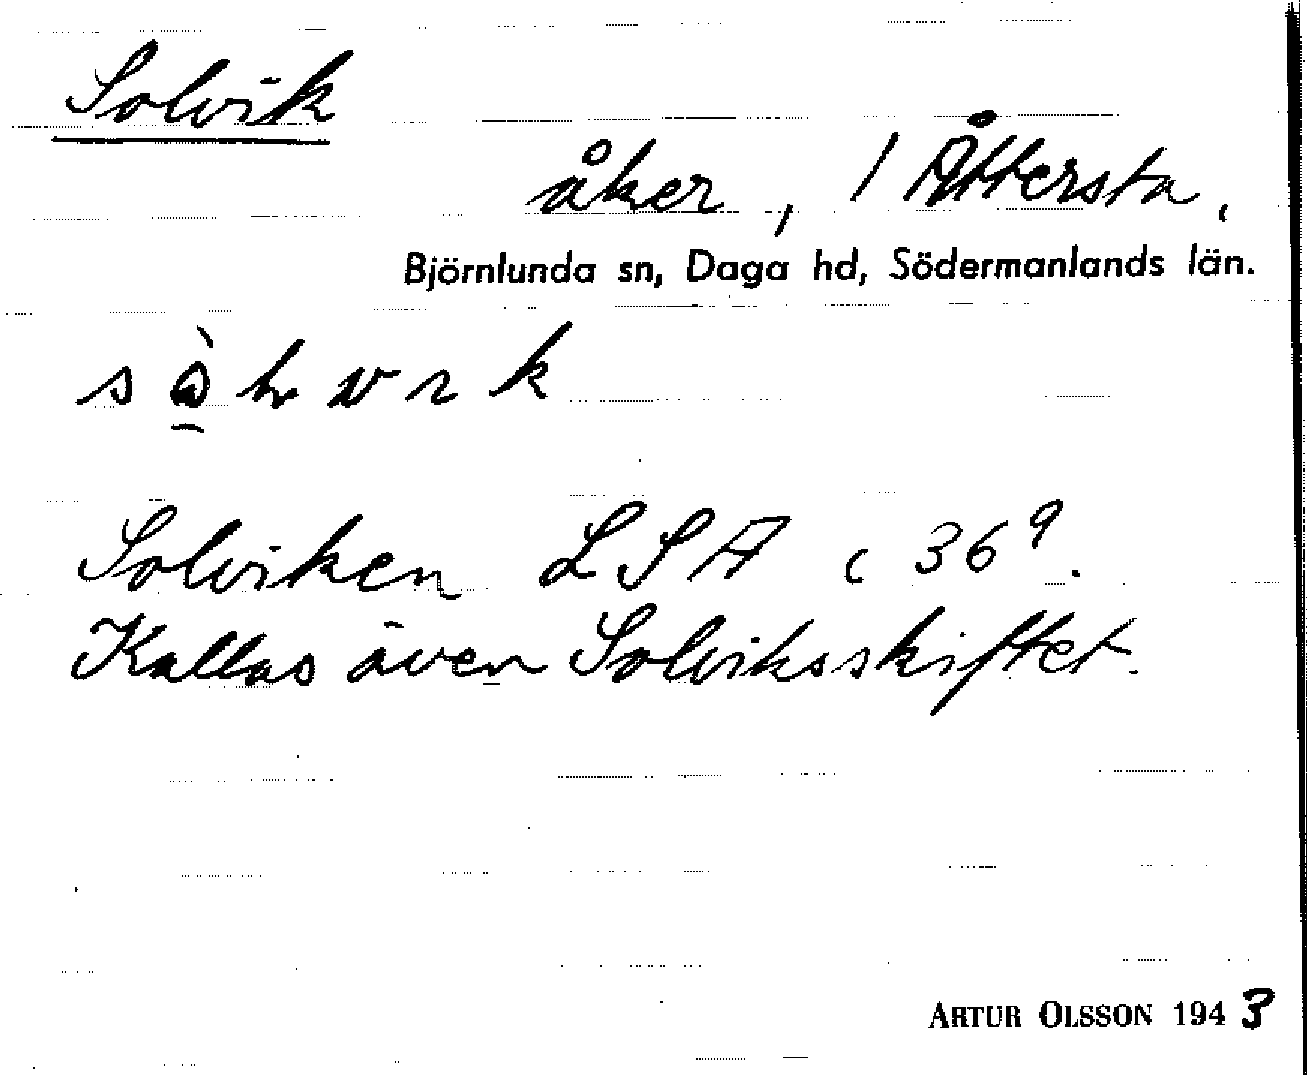 Solvik
åker, / Åttersta,
Björnlunda sn, Daga hd, Södermanlands län.
Solviken LSA c 36⁹.
Kallas även Solviksskiftet.
ARTUR OLSSON 1943